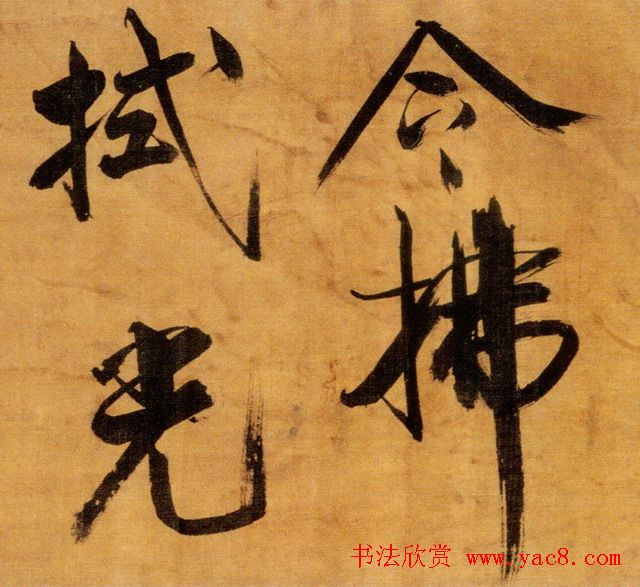 今拂
拭光
书法欣赏 www.yac8.com